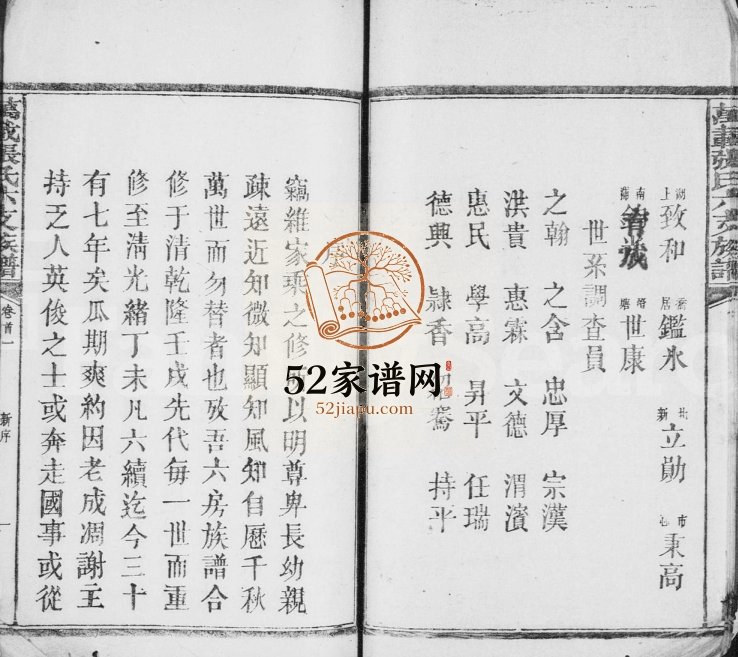 萬載張氏六支族譜
湖上 致和 喬居 鑑氷 新 立勛 市 秉高
南 世康
世系調查員
之翰 之含 忠厚 宗漢
洪貴 惠霖 文德 渭濱
惠民 學高 昇平 任瑞
德興 隷香 持平
序
竊維家乘之修 以明尊卑長幼親
疎遠近知微知顯知風知自歷千秋
萬世而勿替者也攷吾六房族譜合
修于清乾隆壬戌先代每一世而重
修至清光緒丁未凡六續迄今三十
有七年矣瓜期爽約因老成凋謝主
持乏人英俊之士或奔走國事或從
萬載張氏六支族譜 卷首一 新序 一
52家谱网
52jiapu.com